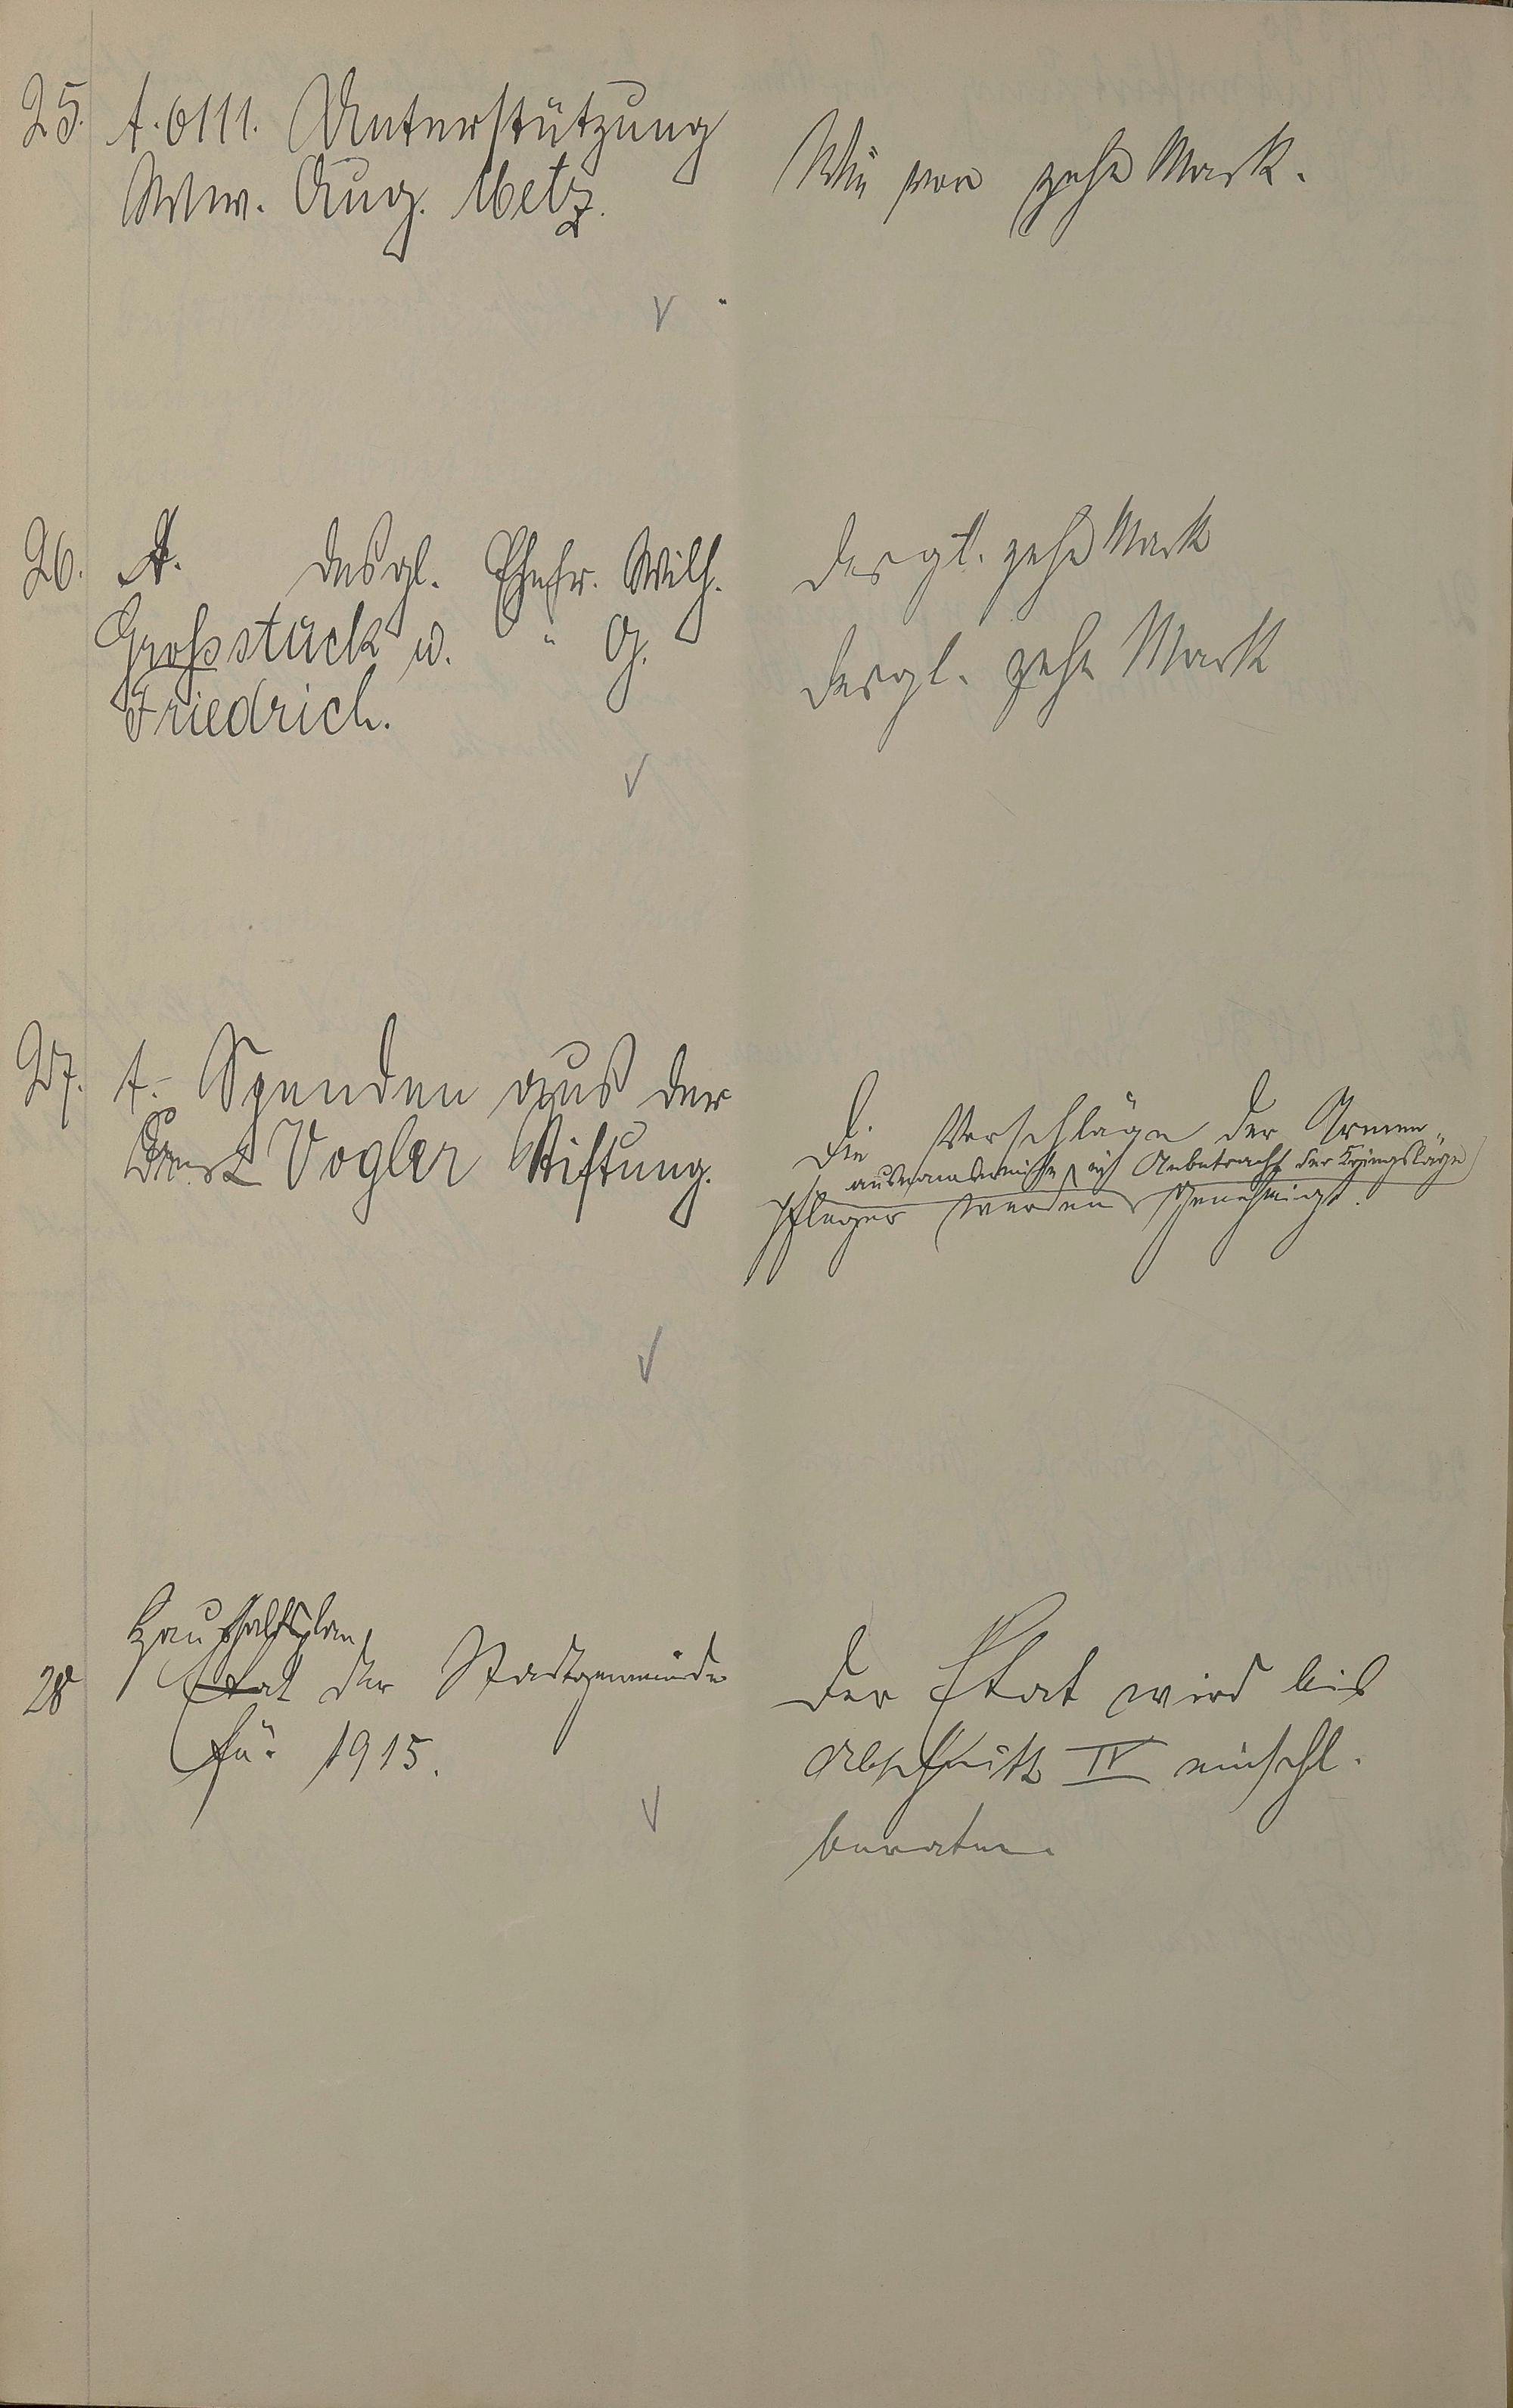 25. A. 6111. Unterstützung
Wtw. Aug. Metz.
Wie vor zehn Mark.
26. A. desgl. Ehefr. Wilh.
Großstück u. " G.
Friedrich.
desgl. zehn Mark
desgl. zehn Mark
27. A. Spenden aus der
Ernst Vogler Stiftung.
Die Vorschläge der Armen-
ausnahmsweise in Anbetracht der Kriegslage
pfleger werden genehmigt.
Haushaltsplan
28 Etat der Stadtgemeinde
für 1915.
Der Etat wird bis
Abschnitt IV einschl.
beraten.